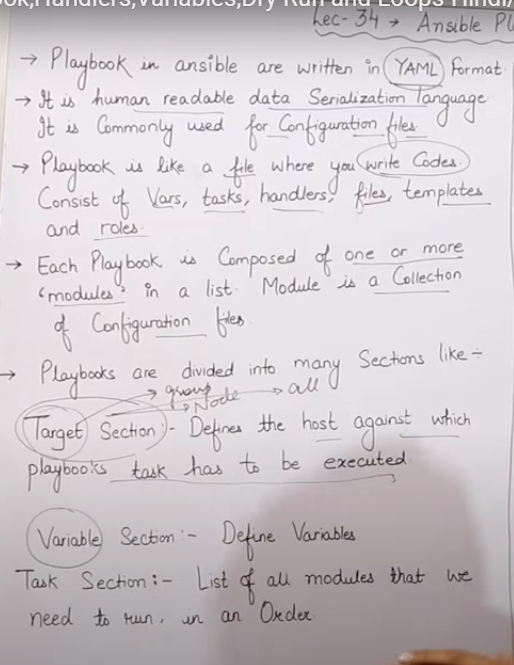 ok,Handlers,Variables,Dry Run and Loops Hindi/
Lec- 34 → Ansible Pl
→ Playbook in ansible are written in YAML format.
→ It is human readable data Serialization language.
It is Commonly used for Configuration files.
→ Playbook is like a file where you write Codes.
Consist of Vars, tasks, handlers, files, templates
and roles.
→ Each Playbook is Composed of one or more
'modules' in a list. Module is a Collection
of Configuration files.
→ Playbooks are divided into many Sections like ÷
→ group
→ Node → all
Target Section :- Defines the host against which
playbooks task has to be executed.
Variable Section :- Define Variables
Task Section :- List of all modules that we
need to run, in an Order.